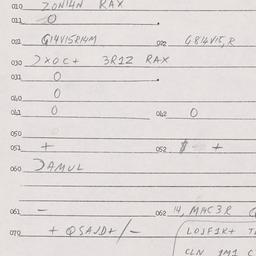 010 ZON14N RAX
011 O .
021 Q14V15R14M 022 G814V15,R
030 JXOC+ 3R12 RAX
031 O .
040 O
041 O 042 O
050
051 + 052 $ +
060 JAMUL
061 - 062 14, MAC3R
070 + QSAJD+/- LOJF1K+
CLN 1M1 C